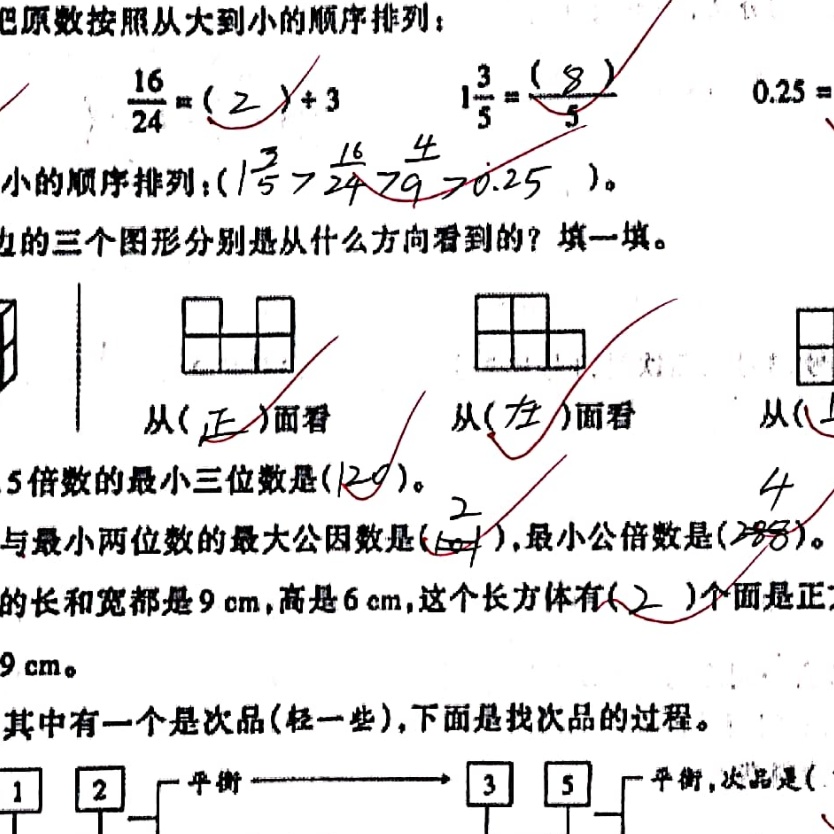 把原数按照从大到小的顺序排列:
16/24=(2)÷3 1 3/5=(8)/5 0.25=
小的顺序排列:(1 3/5>16/24>4/9>0.25)。
边的三个图形分别是从什么方向看到的?填一填。
从(正)面看 从(左)面看 从(
5倍数的最小三位数是(120)。
2 4
与最小两位数的最大公因数是( ),最小公倍数是( )。
的长和宽都是9 cm,高是6 cm,这个长方体有(2)个面是正
9 cm。
其中有一个是次品(轻一些),下面是找次品的过程。
1 2 平衡 3 5 平衡,次品是(